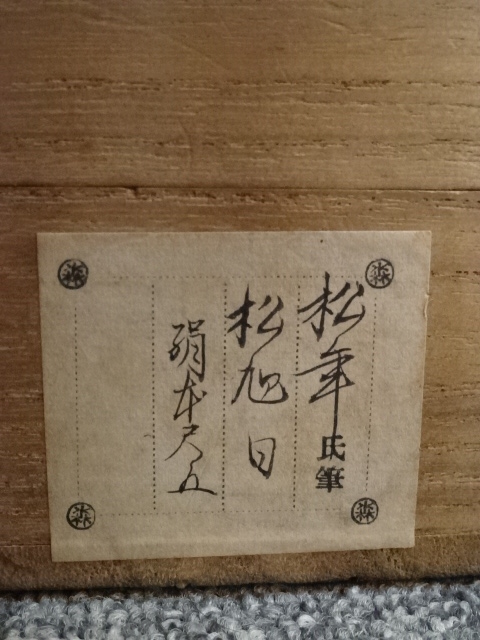 松年氏筆
松旭日
絹本尺五